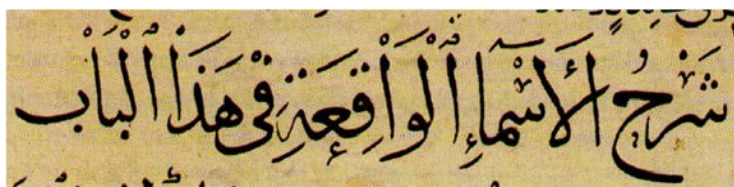 شَرْحُ الْأَسْمَاءِ الْوَاقِعَةِ فِي هَذَا الْبَابِ